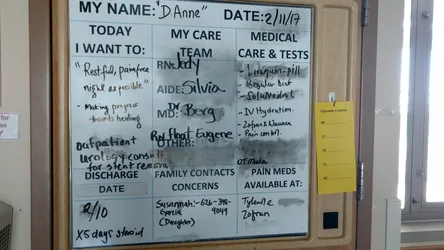 MY NAME: "D'Anne" DATE: 2/11/17
TODAY
I WANT TO:
"Restful, painfree
night as possible"
- Making progress
towards healing
Outpatient
urology consult
for stent removal
MY CARE
TEAM
RN: Jody
AIDE: Silvia
MD: Dr Berg
RN Float Eugene
OTHER:
MEDICAL
CARE & TESTS
- Regular Diet
- SoluMedrol
- IV Hydration.
- Zofran
DISCHARGE
DATE
2/10
x5 days steroid
FAMILY CONTACTS
CONCERNS
Susannah:
(Daughter)
PAIN MEDS
AVAILABLE AT:
Zofran